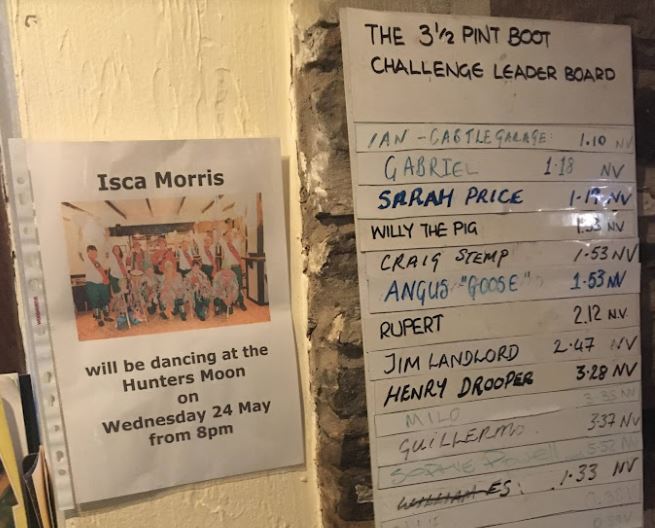 Isca Morris
will be dancing at the
Hunters Moon
on
Wednesday 24 May
from 8pm
THE 3½ PINT BOOT
CHALLENGE LEADER BOARD
IAN - CASTLEGARAGE 1.10 NV
GABRIEL 1.18 NV
SARAH PRICE 1.19 NV
WILLY THE PIG 1.53 NV
CRAIG STEMP 1.53 NV
ANGUS "GOOSE" 1.53 NV
RUPERT 2.12 N.V.
JIM LANDLORD 2.47 NV
HENRY DROOPER 3.28 NV
MILO 3.35 NV
GUILLERMO 3.37 NV
SOPHIE POWELL 5.32
1.33 NV